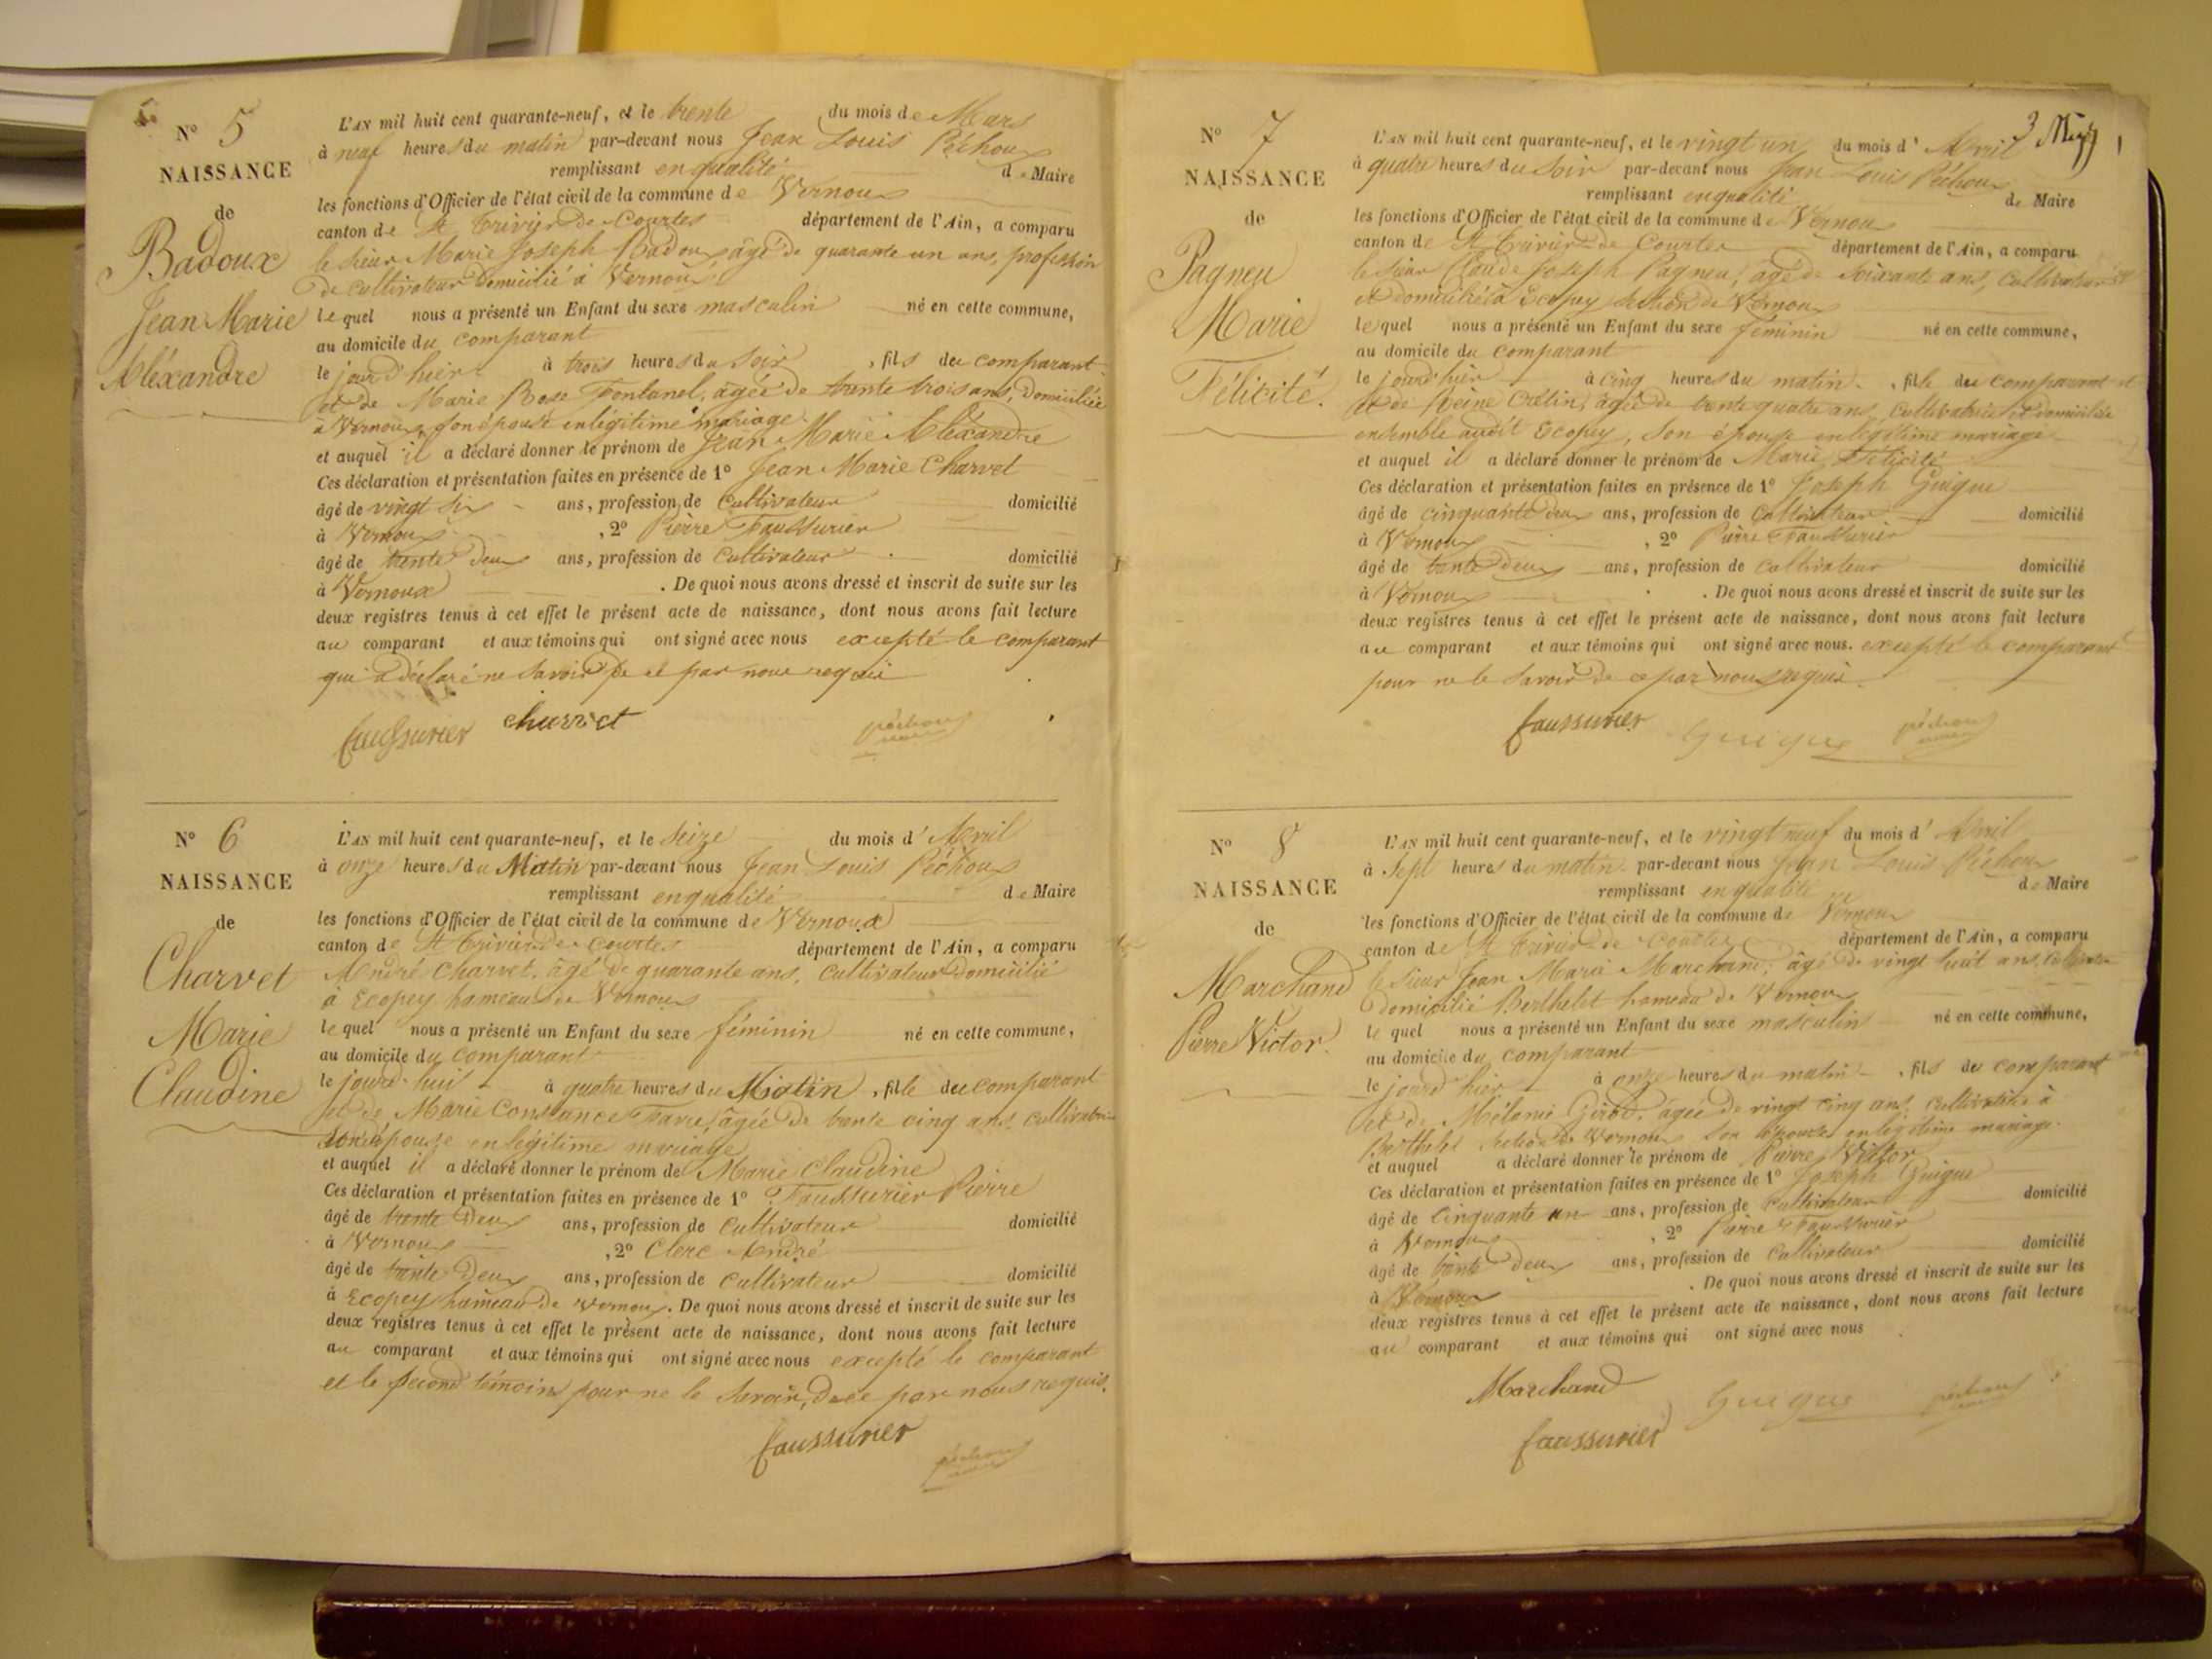 N° 5
NAISSANCE
de
Badoux
Jean Marie
Aléxandre
L'AN mil huit cent quarante-neuf, et le trente du mois de Mars
à neuf heures du matin par-devant nous Jean Louis Péchoux
remplissant en qualité de Maire
les fonctions d'Officier de l'état civil de la commune de Vernoux
canton de St Trivier de Courtes département de l'Ain, a comparu
le sieur Marie Joseph Badoux âgé de quarante un ans, profession
de cultivateur domicilié à Vernoux
lequel nous a présenté un Enfant du sexe masculin né en cette commune,
au domicile du comparant
le jour d'hier à trois heures du soir, fils du comparant
et de Marie Rose Fontanel, âgée de trente trois ans, domiciliée
à Vernoux, son épouse en légitime mariage.
et auquel il a déclaré donner le prénom de Jean Marie Aléxandre
Ces déclaration et présentation faites en présence de 1° Jean Marie Charvet
âgé de vingt six ans, profession de cultivateur domicilié
à Vernoux, 2° Pierre Faussurier
âgé de trente deux ans, profession de cultivateur domicilié
à Vernoux. De quoi nous avons dressé et inscrit de suite sur les
deux registres tenus à cet effet le présent acte de naissance, dont nous avons fait lecture
au comparant et aux témoins qui ont signé avec nous excepté le comparant
qui a déclaré ne savoir de ce par nous requis
faussurier charvet péchoux
N° 6
NAISSANCE
de
Charvet
Marie
Claudine
L'AN mil huit cent quarante-neuf, et le seize du mois d'Avril
à onze heures du Matin par-devant nous Jean Louis Péchoux
remplissant en qualité de Maire
les fonctions d'Officier de l'état civil de la commune de Vernoux
canton de St Trivier de Courtes département de l'Ain, a comparu
André Charvet, âgé de quarante ans, cultivateur domicilié
à Ecopey hameau de Vernoux
lequel nous a présenté un Enfant du sexe féminin né en cette commune,
au domicile du comparant
le jourd'hui à quatre heures du Matin, fille du comparant
et de Marie Constance âgée de trente cinq ans, cultivatrice
son épouse en légitime mariage
et auquel il a déclaré donner le prénom de Marie Claudine
Ces déclaration et présentation faites en présence de 1° Faussurier Pierre
âgé de trente deux ans, profession de cultivateur domicilié
à Vernoux, 2° Clerc André
âgé de trente deux ans, profession de cultivateur domicilié
à Ecopey hameau de Vernoux. De quoi nous avons dressé et inscrit de suite sur les
deux registres tenus à cet effet le présent acte de naissance, dont nous avons fait lecture
au comparant et aux témoins qui ont signé avec nous excepté le comparant
et le second témoin pour ne le savoir, de ce par nous requis.
faussurier
péchoux
3
N° 7
NAISSANCE
de
Pagneu
Marie
Félicité.
L'AN mil huit cent quarante-neuf, et le vingt un du mois d'Avril
à quatre heures du soir par-devant nous Jean Louis Péchoux
remplissant en qualité de Maire
les fonctions d'Officier de l'état civil de la commune de Vernoux
canton de St Trivier de Courtes département de l'Ain, a comparu
le sieur Claude Joseph Pagneu, âgé de soixante ans, cultivateur
et domicilié à Ecopey section de Vernoux
lequel nous a présenté un Enfant du sexe féminin né en cette commune,
au domicile du comparant
le jourd'hier à cinq heures du matin, fille du comparant
et de Reine Crétin, âgée de trente quatre ans, cultivatrice et domiciliée
ensemble audit Ecopey, son épouse en légitime mariage
et auquel il a déclaré donner le prénom de Marie Félicité
Ces déclaration et présentation faites en présence de 1° Joseph Guigue
âgé de cinquante deux ans, profession de cultivateur domicilié
à Vernoux, 2° Pierre Faussurier
âgé de trente deux ans, profession de cultivateur domicilié
à Vernoux. De quoi nous avons dressé et inscrit de suite sur les
deux registres tenus à cet effet le présent acte de naissance, dont nous avons fait lecture
au comparant et aux témoins qui ont signé avec nous. excepté le comparant
pour ne le savoir de ce par nous requis.
faussurier guigue péchoux
N° 8
NAISSANCE
de
Marchand
Pierre Victor.
L'AN mil huit cent quarante-neuf, et le vingt neuf du mois d'Avril
à sept heures du matin par-devant nous Jean Louis Péchoux
remplissant en qualité de Maire
les fonctions d'Officier de l'état civil de la commune de Vernoux
canton de St Trivier de Courtes département de l'Ain, a comparu
le sieur Jean Marie Marchand, âgé de vingt huit ans, cultivateur
domicilié Berthelet hameau de Vernoux
lequel nous a présenté un Enfant du sexe masculin né en cette commune,
au domicile du comparant
le jourd'hier à onze heures du matin, fils du comparant
et de Mélanie Girod, âgée de vingt cinq ans, cultivatrice à
Berthelet section de Vernoux son épouse en légitime mariage.
et auquel a déclaré donner le prénom de Pierre Victor
Ces déclaration et présentation faites en présence de 1° Joseph Guigue
âgé de cinquante un ans, profession de cultivateur domicilié
à Vernoux, 2° Pierre Faussurier
âgé de trente deux ans, profession de cultivateur domicilié
à Vernoux. De quoi nous avons dressé et inscrit de suite sur les
deux registres tenus à cet effet le présent acte de naissance, dont nous avons fait lecture
au comparant et aux témoins qui ont signé avec nous
Marchand guigue péchoux
faussurier